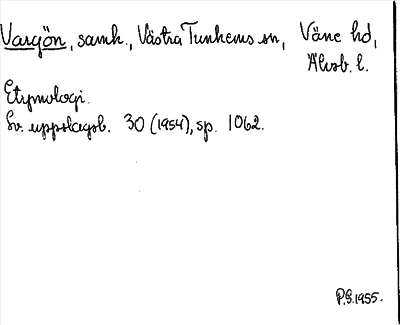 Vargön, samh., Västra Tunhems sn, Väne hd,
Älvsb. l.
Etymologi.
Sv. uppslagsb. 30 (1954), sp. 1062.
P.G. 1955.